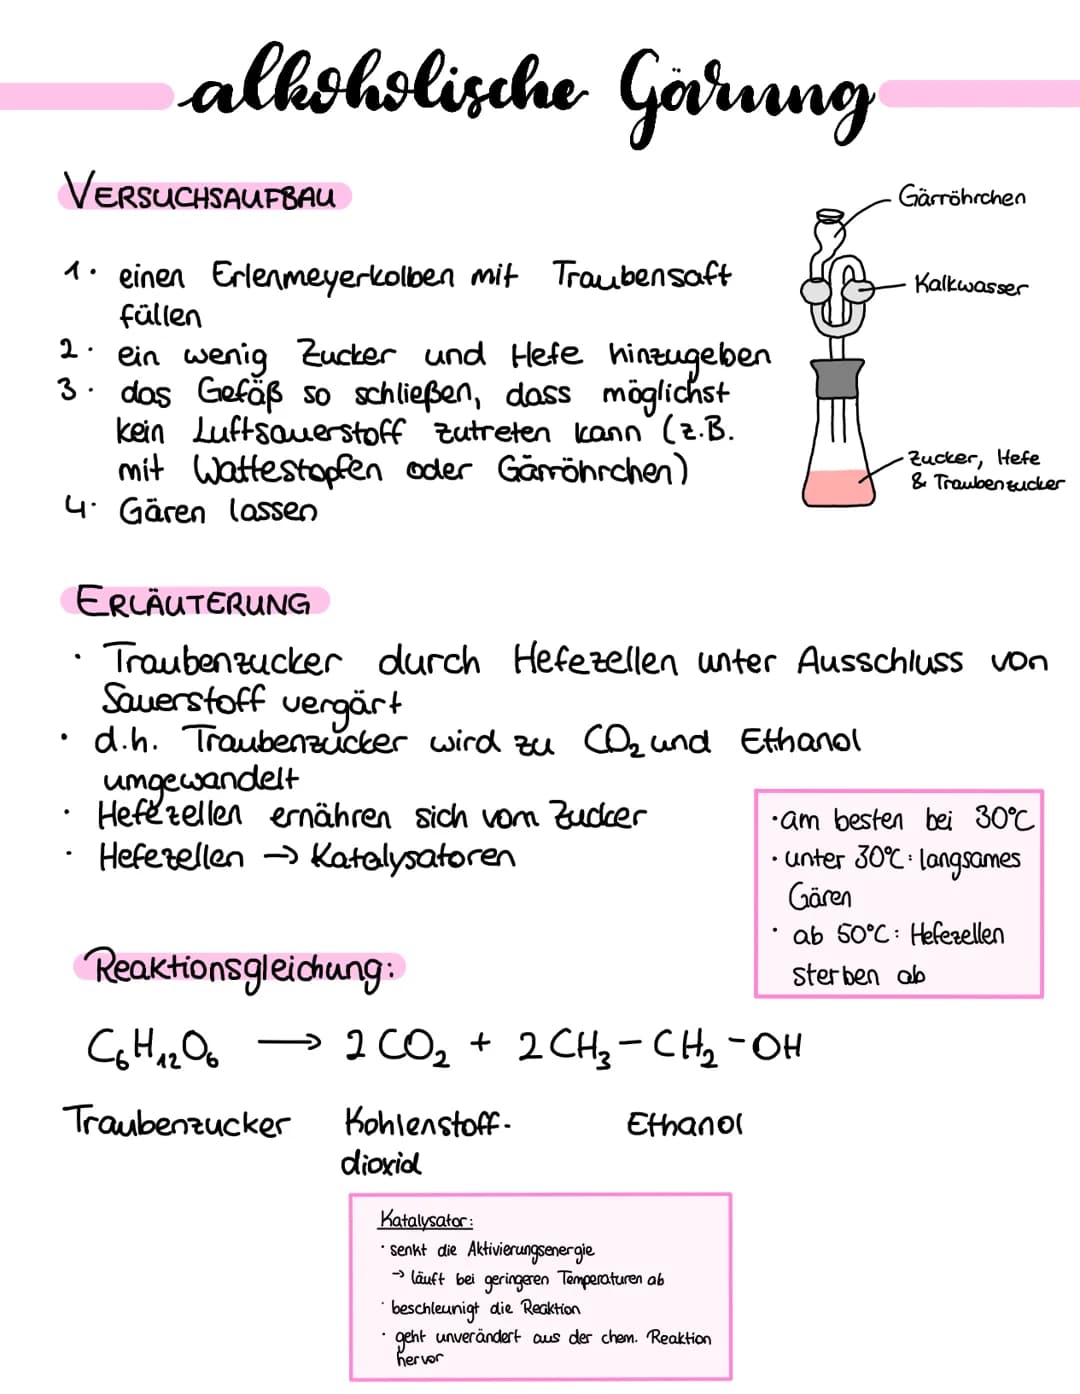 alkoholische Gärung
VERSUCHSAUFBAU
Gärröhrchen
Kalkwasser
Zucker, Hefe
& Traubenzucker
1. einen Erlenmeyerkolben mit Traubensaft
füllen
2. ein wenig Zucker und Hefe hinzugeben
3. das Gefäß so schließen, dass möglichst
kein Luftsauerstoff zutreten kann (z.B.
mit Wattestopfen oder Gärröhrchen)
4. Gären lassen
ERLÄUTERUNG
· Traubenzucker durch Hefezellen unter Ausschluss von
Sauerstoff vergärt
· d.h. Traubenzucker wird zu CO₂ und Ethanol
umgewandelt
· Hefezellen ernähren sich vom Zucker
· Hefezellen → Katalysatoren
· am besten bei 30°C
· unter 30°C: langsames
Gären
· ab 50°C: Hefezellen
sterben ab
Reaktionsgleichung:
C₆H₁₂O₆ → 2 CO₂ + 2 CH₃-CH₂-OH
Traubenzucker Kohlenstoff- Ethanol
dioxid
Katalysator:
· senkt die Aktivierungsenergie
→ läuft bei geringeren Temperaturen ab
· beschleunigt die Reaktion
· geht unverändert aus der chem. Reaktion
hervor